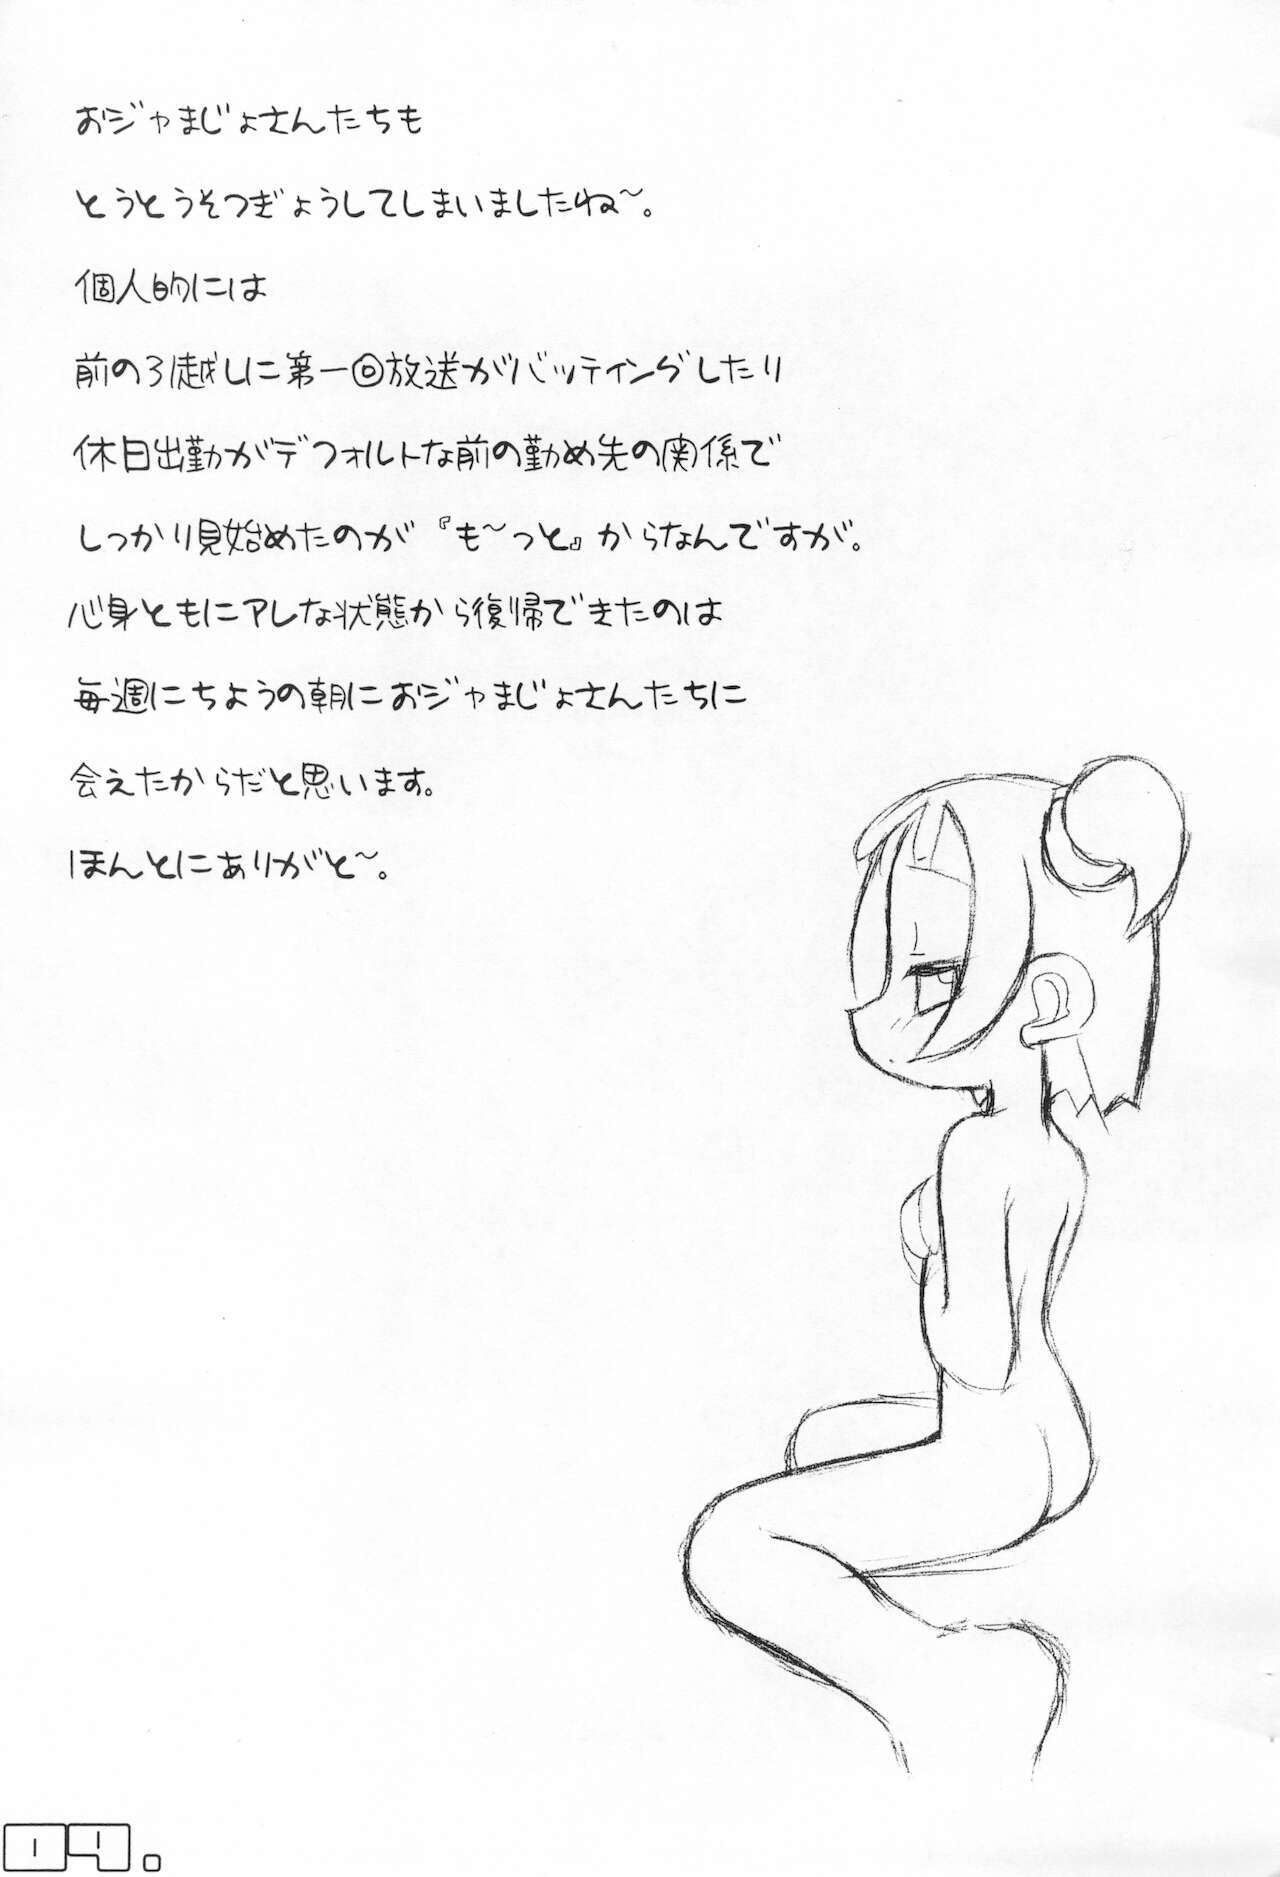 おジャまじょさんたちも
とうとうそつぎょうしてしまいましたね〜。
個人的には
前の引越しに第一回放送がバッティングしたり
休日出勤がデフォルトな前の勤め先の関係で
しっかり見始めたのが『も〜っと』からなんですが。
心身ともにアレな状態から復帰できたのは
毎週にちようの朝におジャまじょさんたちに
会えたからだと思います。
ほんとにありがと〜。
04.